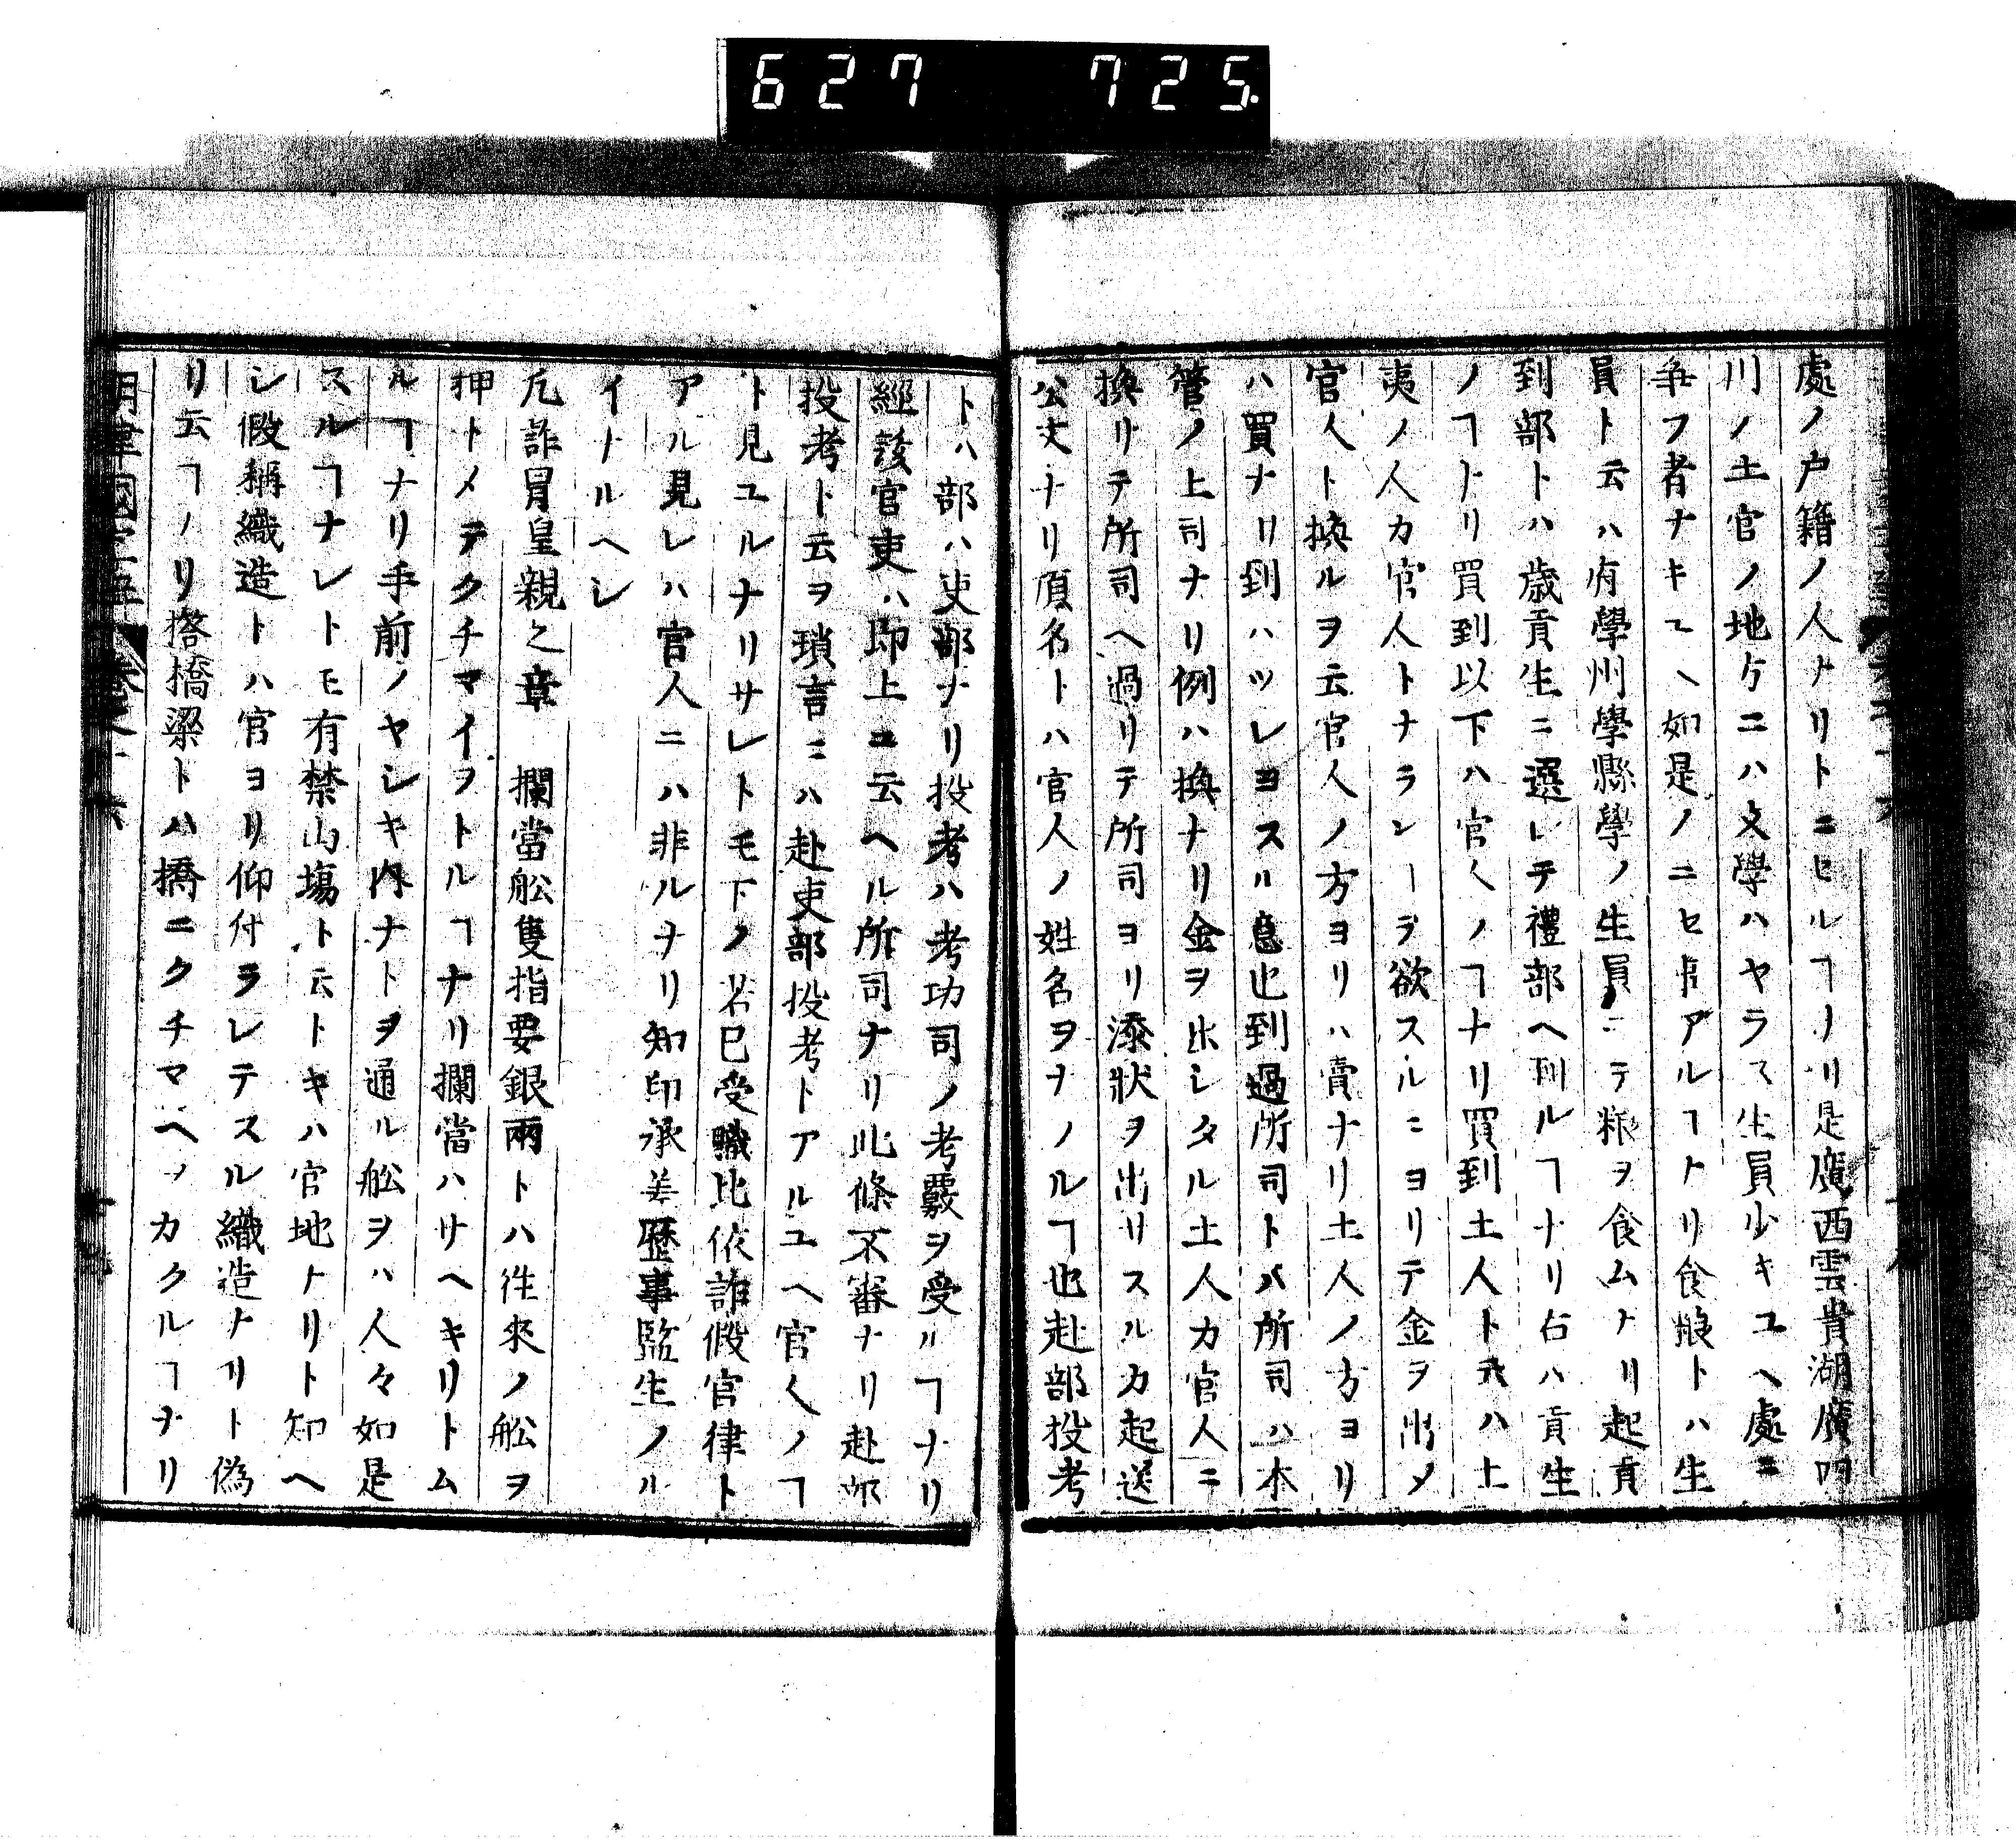 627 725
處ノ戸籍ノ人ナリトニセルヿノリ是廣西雲貴湖廣四
川ノ土官ノ地ケニハ文學ハヤラス生員少キユヘ處ニ
爭フ者ナキユヘ如是ノニセ事アルヿトリ食粮トハ生
員ト云ハ府學州學縣學ノ生員ニテ粮ヲ食ムナリ起貢
到部トハ歳貢生ニ選レテ禮部ヘ到ルヿナリ右ハ貢生
ノヿトリ買到以下ハ官人ノヿナリ買到土人トアハ土
夷ノ人カ官人トナランーヲ欲スルニヨリテ金ヲ出メ
官人ト換ルヲ云官人ノ方ヨリハ賣ナリ土人ノ方ヨリ
ハ買ナリ到ハツレヨスル意也到過所司トハ所司ハ本
管ノ上司ナリ例ハ換ナリ金ヲ出シタル土人カ官人ニ
換リテ所司ヘ過リテ所司ヨリ添狀ヲ出リスルカ起送
公文ナリ頂名トハ官人ノ姓名ヲナノルヿ也赴部投考
トハ部ハ吏部ナリ投考ハ考功司ノ考覈ヲ受ルヿナリ
經該官吏ハ即上ニ云ヘル所司ナリ此條不審ナリ赴部
投考ト云ヲ瑣言ニハ赴吏部投考トアルユヘ官人ノヿ
ト見ユルナリサレトモ下ノ若已受職比依詐假官律ト
アル見レハ官人ニハ非ルナリ知印承差歷事監生ノル
イナルヘシ
凡詐冒皇親之章 攔當舩隻指要銀兩トハ往來ノ舩ヲ
押トメテクチマイヲトルヿナリ攔當ハサヘキリトム
ルヿナリ手前ノヤシキ内ナトヲ通ル舩ヲハ人々如是
スルヿナレトモ有禁山塲ト云トキハ官地トリト知ヘ
シ假稱織造トハ官ヨリ仰付ラレテスル織造ナリト僞
リ云ヿノリ撘橋梁トハ橋ニクチマヘノカクルヿナリ
明律國字解 卷之十六